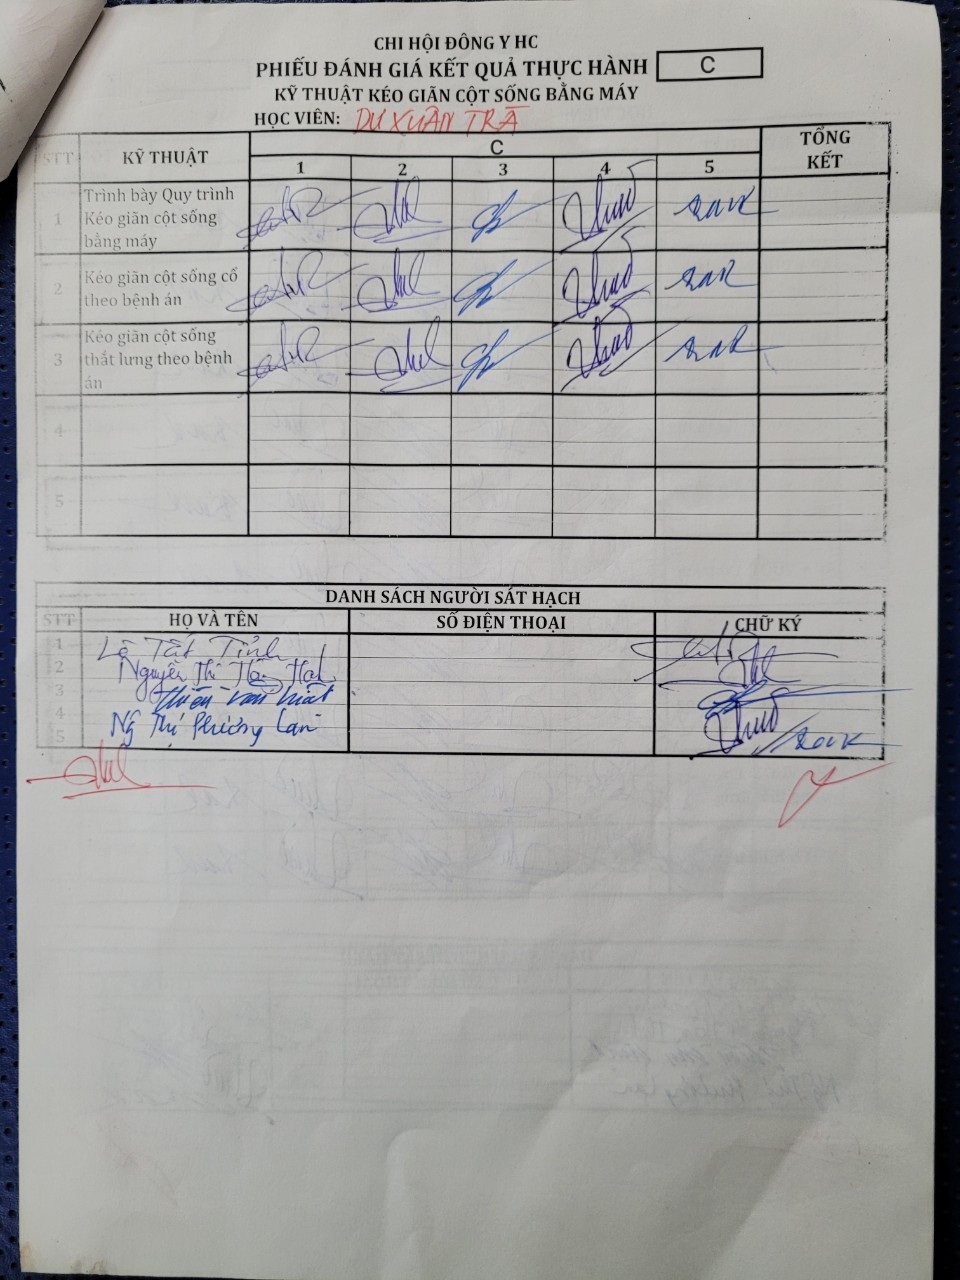 CHI HỘI ĐÔNG Y HC
PHIẾU ĐÁNH GIÁ KẾT QUẢ THỰC HÀNH C
KỸ THUẬT KÉO GIÃN CỘT SỐNG BẰNG MÁY
HỌC VIÊN: DƯ XUÂN TRÀ
STT KỸ THUẬT C TỔNG KẾT
1 2 3 4 5
1 Trình bày Quy trình
Kéo giãn cột sống
bằng máy
2 Kéo giãn cột sống cổ
theo bệnh án
3 Kéo giãn cột sống
thắt lưng theo bệnh
án
4
5
DANH SÁCH NGƯỜI SÁT HẠCH
STT HỌ VÀ TÊN SỐ ĐIỆN THOẠI CHỮ KÝ
1 Lê Tất Tỉnh
2 Nguyễn Thị
3
4 Ng Thị Phương Lan
5